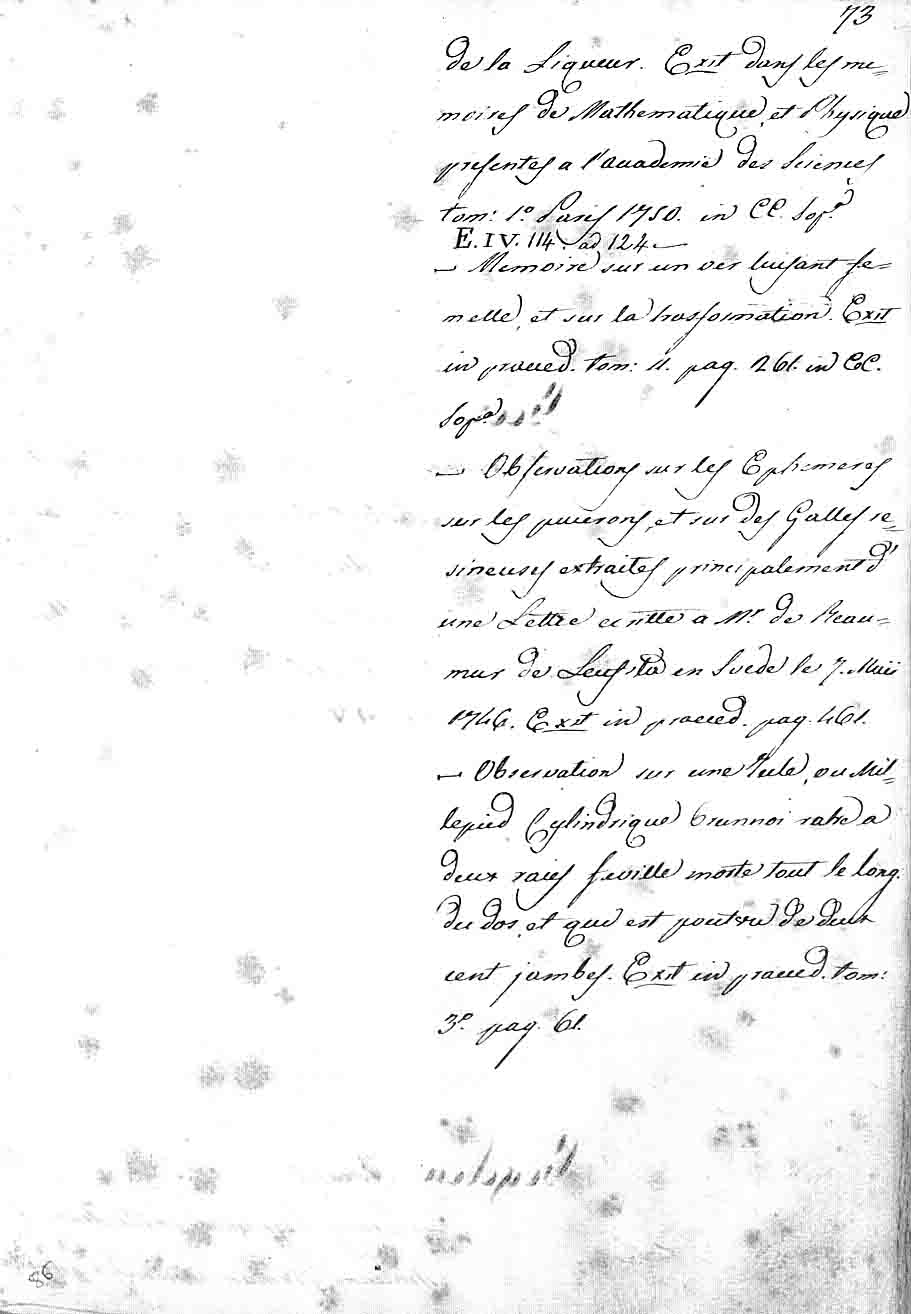 73
de la Liqueur. Exit dans les me=
moires de Mathematique, et Physique
presentes a l'academie des Sciences
tom: 1.º Paris 1750. in CC. Sop.ª
E. IV. 114. ad 124
— Memoire sur un ver luisant fe=
melle, et sur la trasformation. Exit
in praeced. tom: II. pag. 261. in CC.
Sop.ª
— Observations sur les Ephemeres
sur les pucerons, et sur des Galles re=
sineuses extraites principalement d'
une Lettre ecritte a Mr. de Reau=
mur de Leufsta en Svede le 7. Maii
1746. Exit in praeced. pag. 461.
— Observation sur une Iule, ou Mil=
lepied Cylindrique brunnoi ratre a
deux raies feuille morte tout le long.
du dos, et que est pourvu de deux
cent jambes. Exit in praeced. tom:
3.º pag. 61.
86